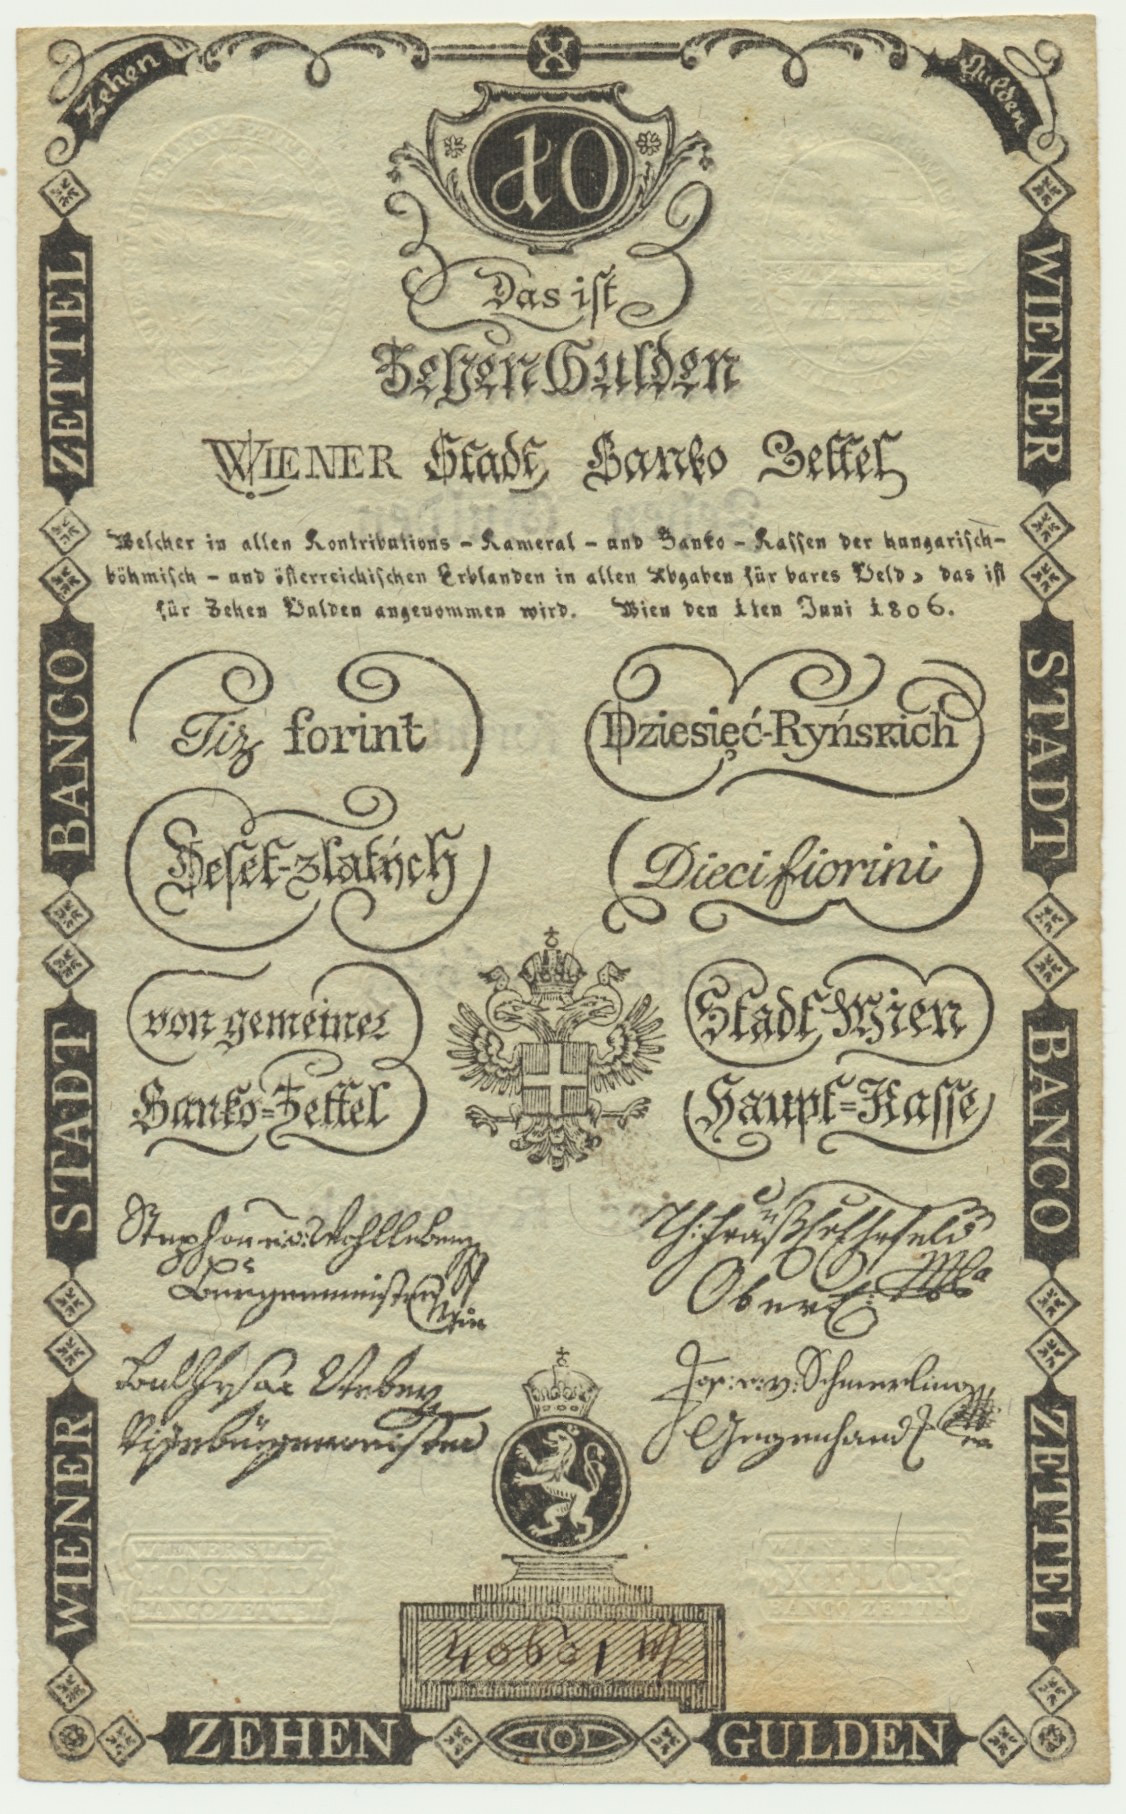 Zehen X Gulden
10
Das ist
Zehen Gulden
WIENER Stadt Banko Zettel
Welcher in allen Kontributions - Kameral - und Banko - Kassen der hungarisch-
böhmisch - und österreichischen Erblanden in allen Abgaben für bares Geld, das ist
für Zehen Gulden angenommen wird. Wien den 1ten Juni 1806.
Tiz forint
Dziesięć-Ryńskich
Deset-zlatých
Dieci fiorini
von gemeiner
Stadt Wien
Banko=Zettel
Haupt=Kasse
Stephan v. Wohlleben
Burgermeister
Obereinn
Jos: v: Schmerling
Gegenhand
40601
ZETTEL
BANCO
STADT
WIENER
WIENER
STADT
BANCO
ZETTEL
WIENER STADT
10 GULD
BANCO ZETTEL
X FLOR
BANCO ZETTEL
ZEHEN
GULDEN